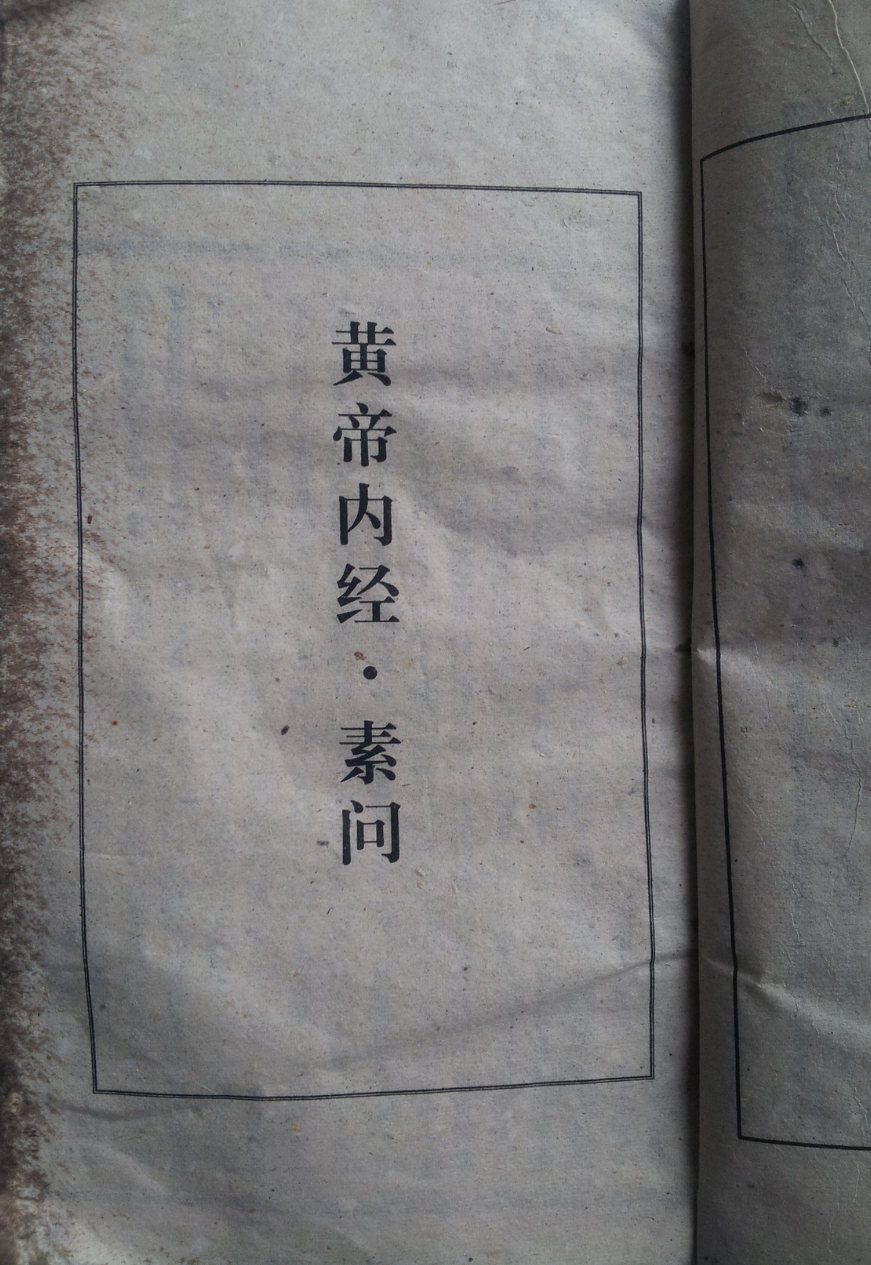 黄帝内经·素问